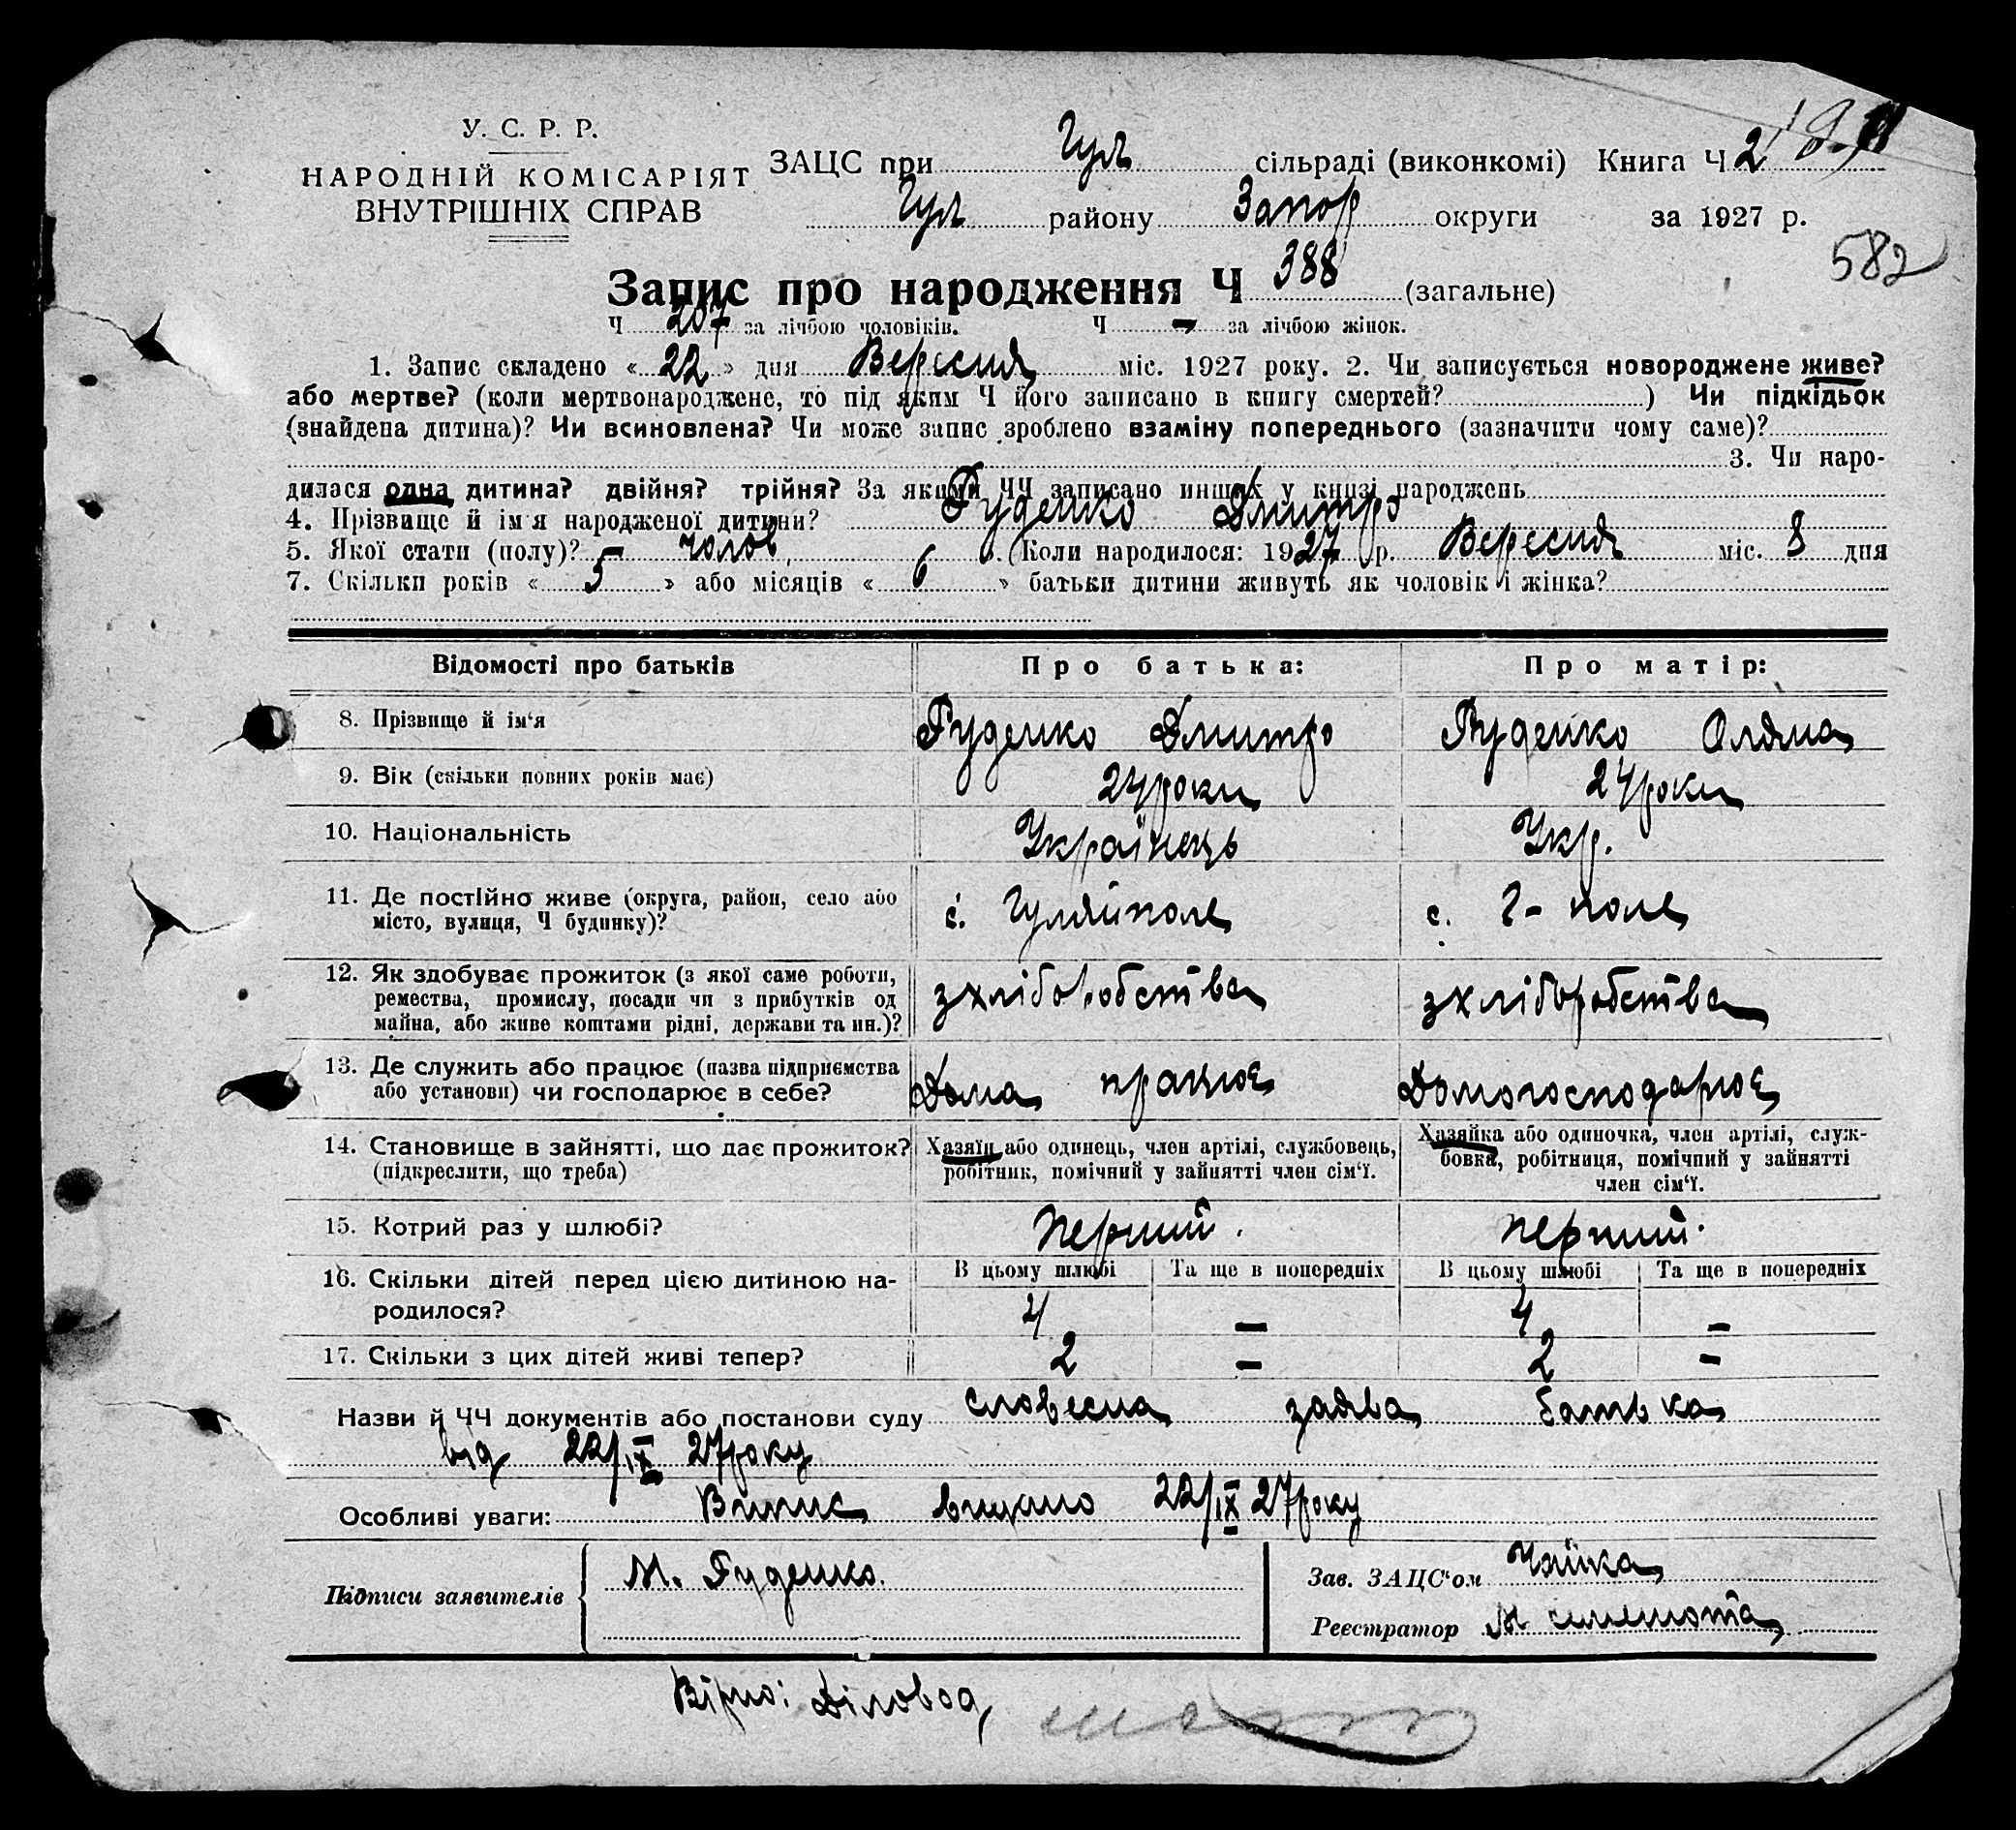 У. С. Р. Р.
НАРОДНІЙ КОМІСАРІЯТ
ВНУТРІШНІХ СПРАВ
ЗАЦС при Гул сільраді (виконкомі) Книга Ч 2
Гул району Запор округи за 1927 р.
582
Запис про народження Ч 388 (загальне)
Ч 207 за лічбою чоловіків. Ч - за лічбою жінок.
1. Запис складено « 22 » дня Вересня міс. 1927 року. 2. Чи записується новороджене живе?
або мертве? (коли мертвонароджене, то під яким Ч його записано в книгу смертей? ) Чи підкідьок
(знайдена дитина)? Чи всиновлена? Чи може запис зроблено взаміну попереднього (зазначити чому саме)?
3. Чи наро-
дилася одна дитина? двійня? трійня? За якими ЧЧ записано инших у книзі народжень
4. Прізвище й ім'я народженої дитини? Руденко Дмитро
5. Якої стати (полу)? чолов 6. (Коли народилося: 1927 р. Вересня міс. 8 дня
7. Скільки років « 5 » або місяців « 6 » батьки дитини живуть як чоловік і жінка?
Відомості про батьків Про батька: Про матір:
8. Прізвище й ім'я Руденко Дмитро Руденко Оляна
9. Вік (скільки повних років має) 24 роки 24 роки
10. Національність Українець Укр.
11. Де постійно живе (округа, район, село або
місто, вулиця, Ч будинку)? с. Гуляйполе с. Г-поле
12. Як здобуває прожиток (з якої саме роботи,
ремества, промислу, посади чи з прибутків од
майна, або живе коштами рідні, держави та ин.)? з хліборобства з хліборобства
13. Де служить або працює (назва підприємства
або установи) чи господарює в себе? Дома працює Домогосподарює
14. Становище в зайнятті, що дає прожиток?
(підкреслити, що треба)
Хазяїн або одинець, член артілі, службовець,
робітник, помічний у зайнятті член сім'ї.
Хазяйка або одиночка, член артілі, служ-
бовка, робітниця, помічний у зайнятті
член сім'ї.
15. Котрий раз у шлюбі? перший. перший.
16. Скільки дітей перед цією дитиною на-
родилося?
В цьому шлюбі Та ще в попередніх В цьому шлюбі Та ще в попередніх
4 - 4 -
17. Скільки з цих дітей живі тепер? 2 - 2 -
Назви й ЧЧ документів або постанови суду словесна заява батька
від 22/IX 27 року
Особливі уваги: Випис видано 22/IX 27 року
Підписи заявителів М. Руденко.
Зав. ЗАЦС'ом Чайка
Реєстратор
Вірно: Діловод